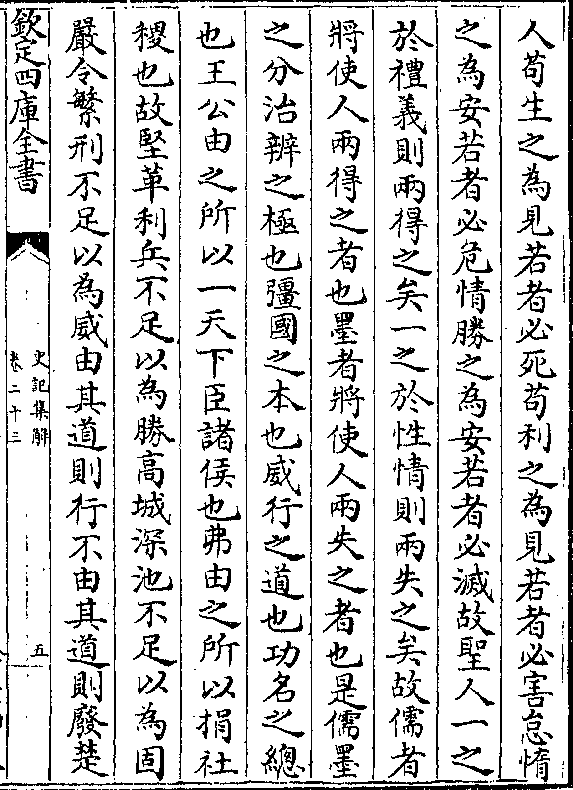 人苟生之為見若者必死苟利之為見若者必害怠惰
之為安若者必危情勝之為安若者必滅故聖人一之
於禮義則兩得之矣一之於性情則兩失之矣故儒者
將使人兩得之者也墨者將使人兩失之者也是儒墨
之分治辨之極也彊國之本也威行之道也功名之總
也王公由之所以一天下臣諸侯也弗由之所以捐社
稷也故堅革利兵不足以為勝高城深池不足以為固
嚴令繁刑不足以為威由其道則行不由其道則廢楚
欽定四庫全書
史記集解
卷二十三
五